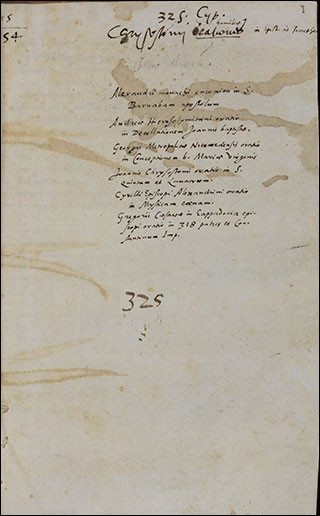 1
325. Cyp.
54.
homiliae
Chrysostomi orationes in
Alexandri monachi encomion in S.
Barnabam apostolum
Andreae Hierosolymitani oratio
in Decollationem Joannis baptistae.
Georgii Metropolitae Nicomediensis oratio
in Conceptionem b. Mariae Virginis
Joannis Chrysostomi oratio in S.
et
Cyrilli Episcopi Alexandrini oratio
in Mysticam coenam.
Gregorii Caesareae in Cappadocia epi-
scopi oratio in 318 patres et Con-
stantinum Imp.
325